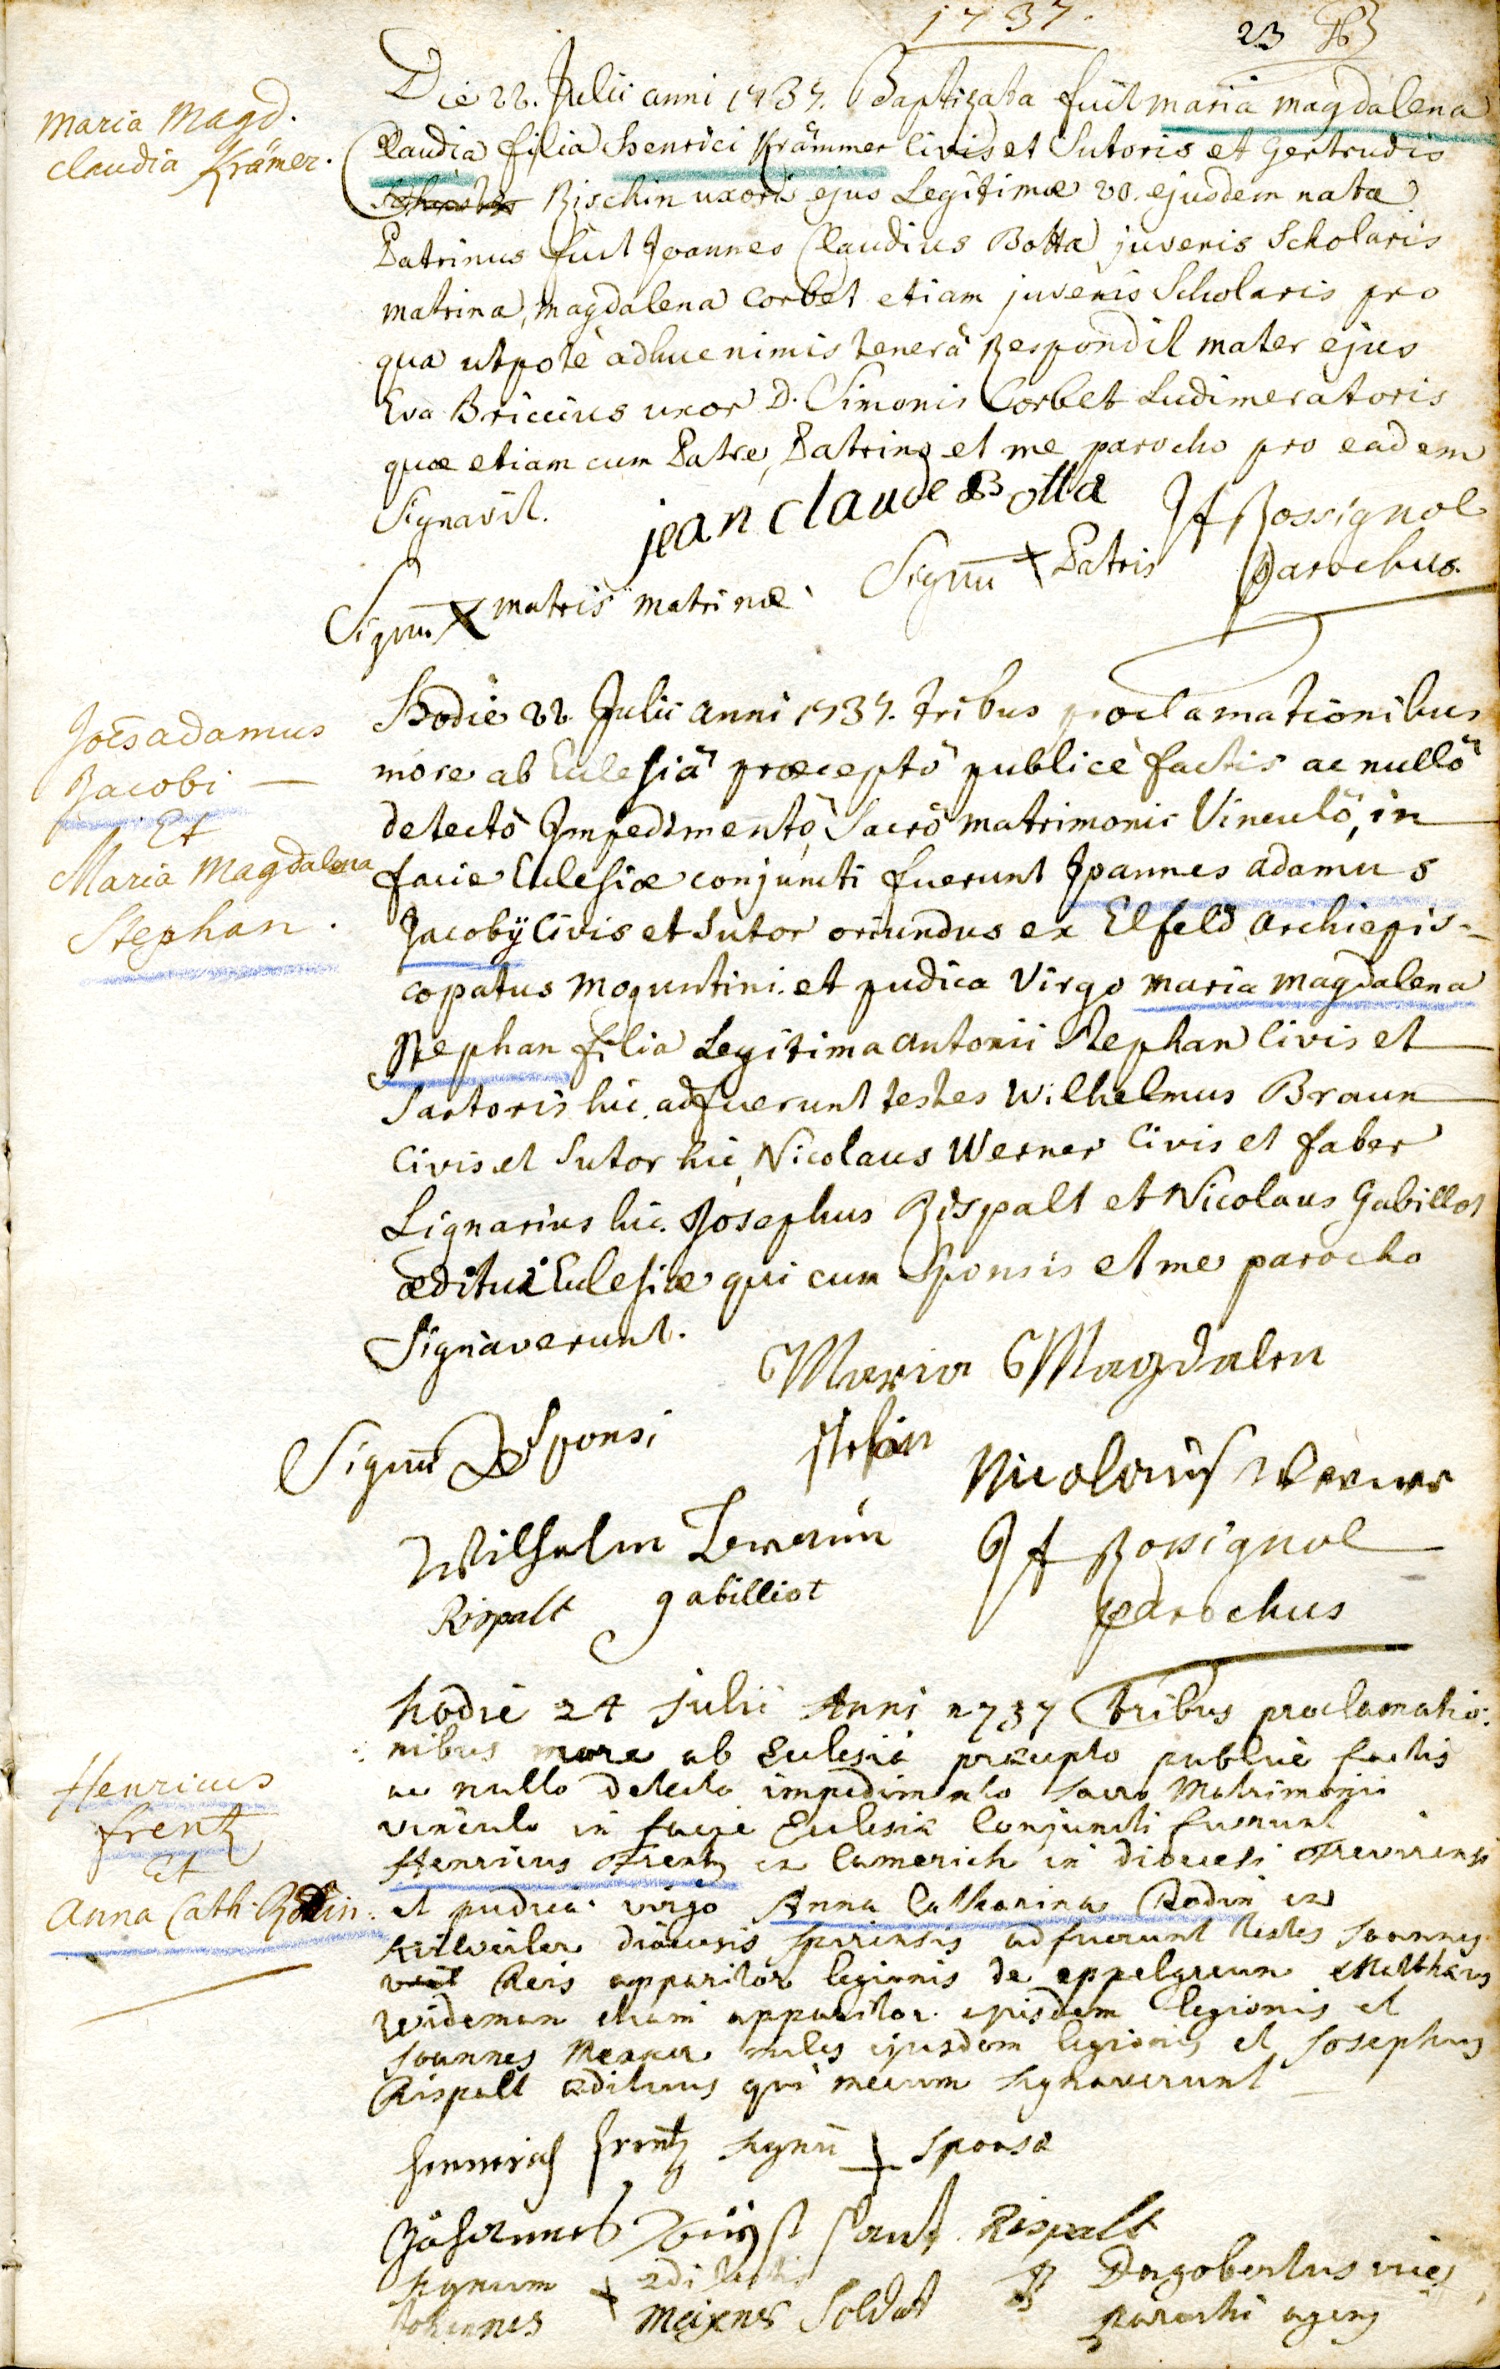 1737.
23
Maria Magd.
Claudia Krämer.
Die 22. Julii anni 1737. Baptizata fuit maria magdalena
Claudia filia Henrici Krämmer Civis et Sutoris et Gertrudis
Rischin uxoris ejus Legitimæ 20. ejusdem nata
Patrinus fuit Joannes Claudius Botta juvenis Scholaris
matrina, magdalena Corbet etiam juvenis Scholaris pro
qua utpote adhuc nimis tenerâ Respondit mater ejus
Eva Briccius uxor D. Simonis Corbet Ludimeratoris
quæ etiam cum Patre, Patrino et me parocho pro eadem
Signavit.
jean claude Botta
JF Rossignol
Parochus.
Signū X matris matrinæ
Signū + Patris
Joēs adamus
Jacobi
Et
Maria Magdalena
Stephan.
Hodie 22. Julii anni 1737. tribus proclamationibus
more ab Eclesiâ præceptô publicè factis ac nullô
detectô Impedimentô, Sacrô matrimonii Vinculô, in
facie Eclesiæ conjuncti fuerunt Joannes adamus
Jacobÿ Civis et Sutor oriundus ex Elfeld Archiepis-
copatus Moguntini. et pudica Virgo maria magdalena
Stephan filia Legitima antonii Stephan Civis et
Sartoris hic. adfuerunt testes Wilhelmus Braun
Civis et Sutor hic, Nicolaus Werner Civis et faber
Lignarius hic. Josephus Rispalt et Nicolaus Gabillot
æditui Eclesiæ qui cum Sponsis et me parocho
Signaverunt.
Maria Magdalena
Signū Sponsi
Nicolaus Werner
Wilhelm Braun
JF Rossignol
Rispalt gabilliot
parochus
Henricus
frentz
Et
Anna Cath: Rödin.
hodie 24 Julii Anni 1737 tribus proclamatio-
nibus more ab Eclesiâ præcepto publicè factis
ac nullo detecto impedimento sacro Matrimonii
vinculo in facie Eclesiæ Conjuncti fuerunt
Henricus Frentz ex Camerich in diœcesi Trevirensi
et pudica virgo Anna Catharina Rodin ex
diœcesis spirensis adfuerunt testes Joannes
Reis apparitor legionis de eppelgreun Mathæus
Wideman etiam apparitor ejusdem legionis et
Joannes miles ejusdem legionis et Josephus
Rispalt ædituus qui mecum signaverunt
Heinrich frentz signū + sponsæ
Johannes Rispalt
signum +
Johannes Meixner Soldat
Dagobertus
parochi agens